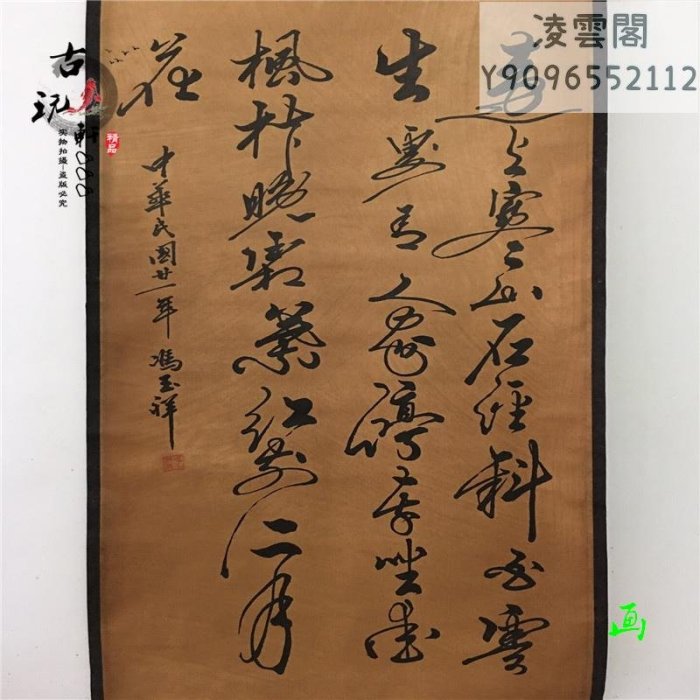 凌雲閣
Y9096552112
古玩軒888
精品
实物拍摄—盗版必究
遠上寒山石徑斜白雲
生處有人家停車坐愛
楓林晚霜葉紅於二月
花
中華民國廿一年 馮玉祥
画